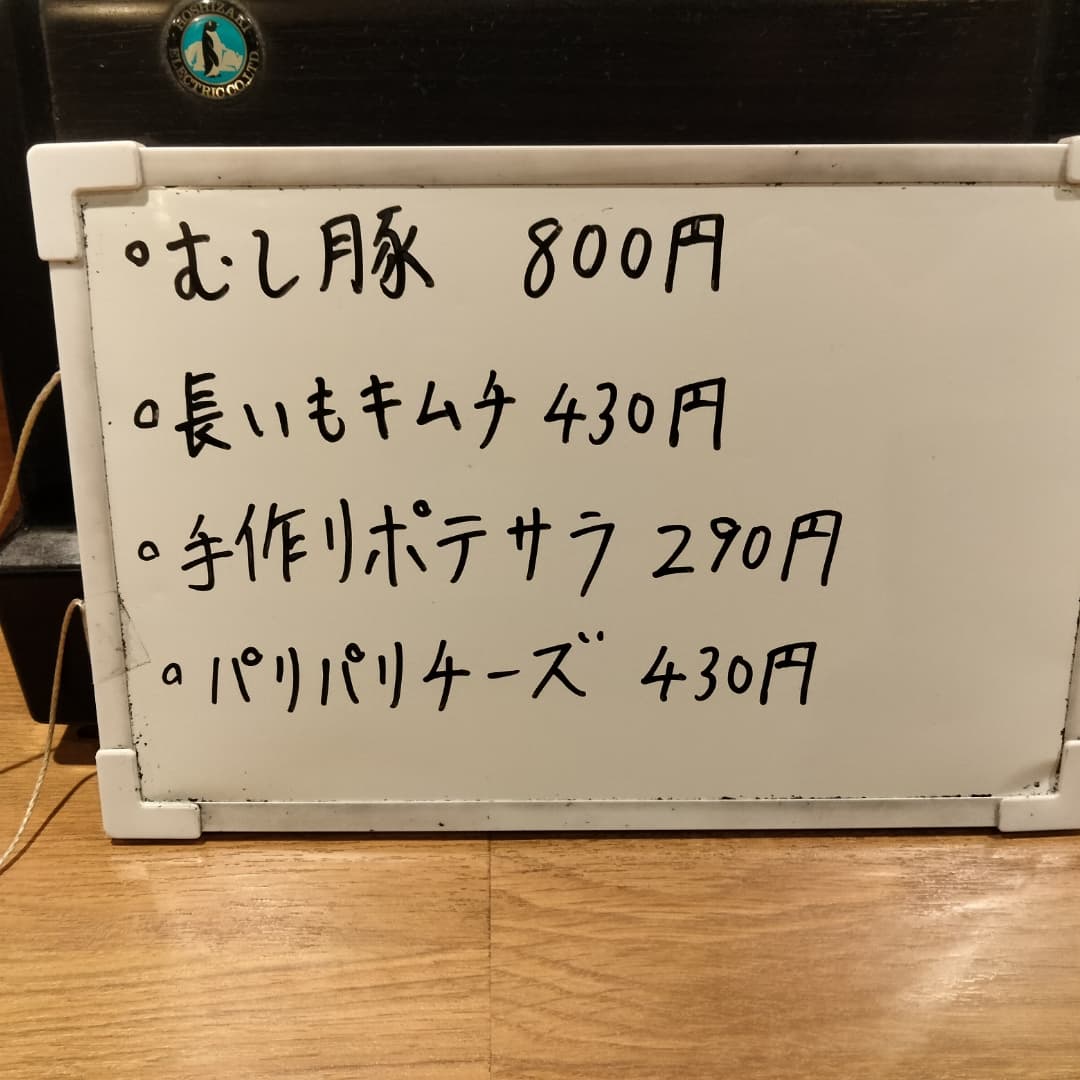 HOSHIZAKI
ELECTRIC CO.LTD
。むし豚 800円
。長いもキムチ 430円
。手作りポテサラ 290円
。パリパリチーズ 430円